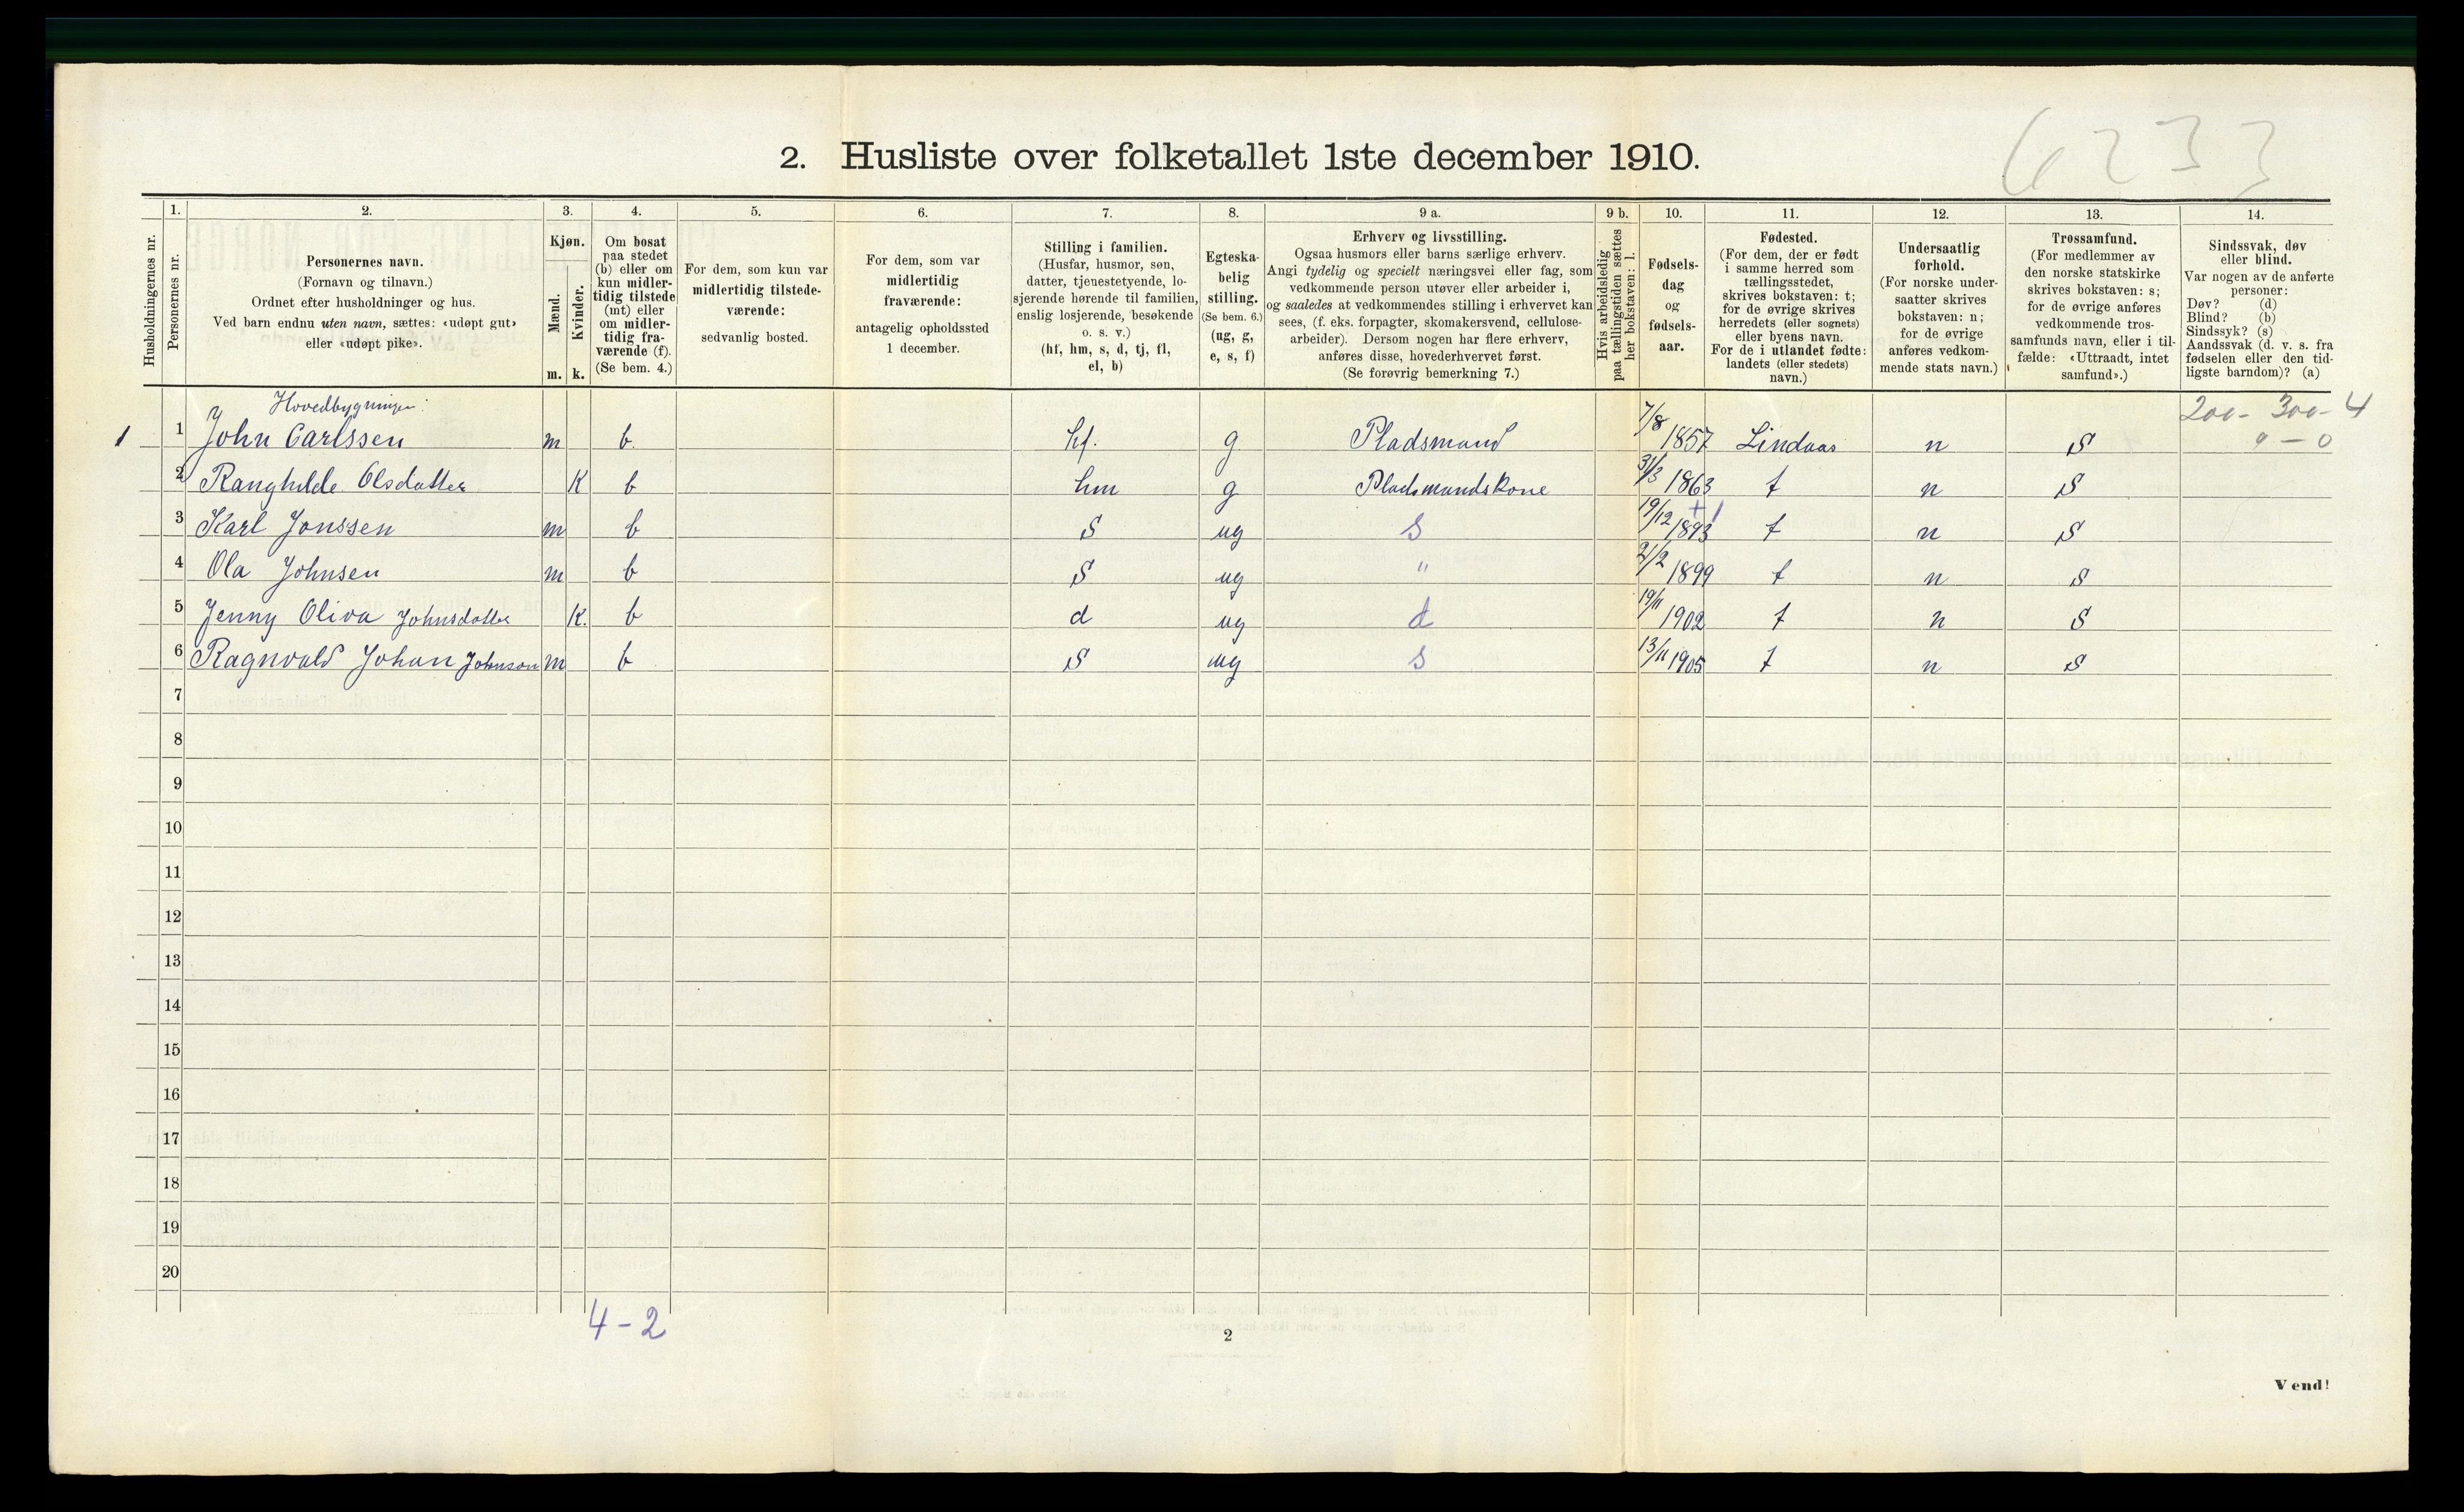 6233
2. Husliste over folketallet 1ste december 1910.
1. 2. 3. 4. 5. 6. 7. 8. 9 a. 9 b. 10. 11. 12. 13. 14.
Husholdningernes nr.
Personernes nr.
Personernes navn.
(Fornavn og tilnavn.)
Ordnet efter husholdninger og hus.
Ved barn endnu uten navn, sættes: «udøpt gut»
eller «udøpt pike».
Kjøn.
Mænd.
Kvinder.
m. k.
Om bosat
paa stedet
(b) eller om
kun midler-
tidig tilstede
(mt) eller
om midler-
tidig fra-
værende (f).
(Se bem. 4.)
For dem, som kun var
midlertidig tilstede-
værende:
sedvanlig bosted.
For dem, som var
midlertidig
fraværende:
antagelig opholdssted
1 december.
Stilling i familien.
(Husfar, husmor, søn,
datter, tjenestetyende, lo-
sjerende hørende til familien,
enslig losjerende, besøkende
o. s. v.)
(hf, hm, s, d, tj, fl,
el, b)
Egteska-
belig
stilling.
(Se bem. 6.)
(ug, g,
e, s, f)
Erhverv og livsstilling.
Ogsaa husmors eller barns særlige erhverv.
Angi tydelig og specielt næringsvei eller fag, som
vedkommende person utøver eller arbeider i,
og saaledes at vedkommendes stilling i erhvervet kan
sees, (f. eks. forpagter, skomakersvend, cellulose-
arbeider). Dersom nogen har flere erhverv,
anføres disse, hovederhvervet først.
(Se forøvrig bemerkning 7.)
Hvis arbeidsledig
paa tællingstiden sættes
her bokstaven: l.
Fødsels-
dag
og
fødsels-
aar.
Fødested.
(For dem, der er født
i samme herred som
tællingsstedet,
skrives bokstaven: t;
for de øvrige skrives
herredets (eller sognets)
eller byens navn.
For de i utlandet fødte:
landets (eller stedets)
navn.)
Undersaatlig
forhold.
(For norske under-
saatter skrives
bokstaven: n;
for de øvrige
anføres vedkom-
mende stats navn.)
Trossamfund.
(For medlemmer av
den norske statskirke
skrives bokstaven: s;
for de øvrige anføres
vedkommende tros-
samfunds navn, eller i til-
fælde: «Uttraadt, intet
samfund».)
Sindssvak, døv
eller blind.
Var nogen av de anførte
personer:
Døv? (d)
Blind? (b)
Sindssyk? (s)
Aandssvak (d. v. s. fra
fødselen eller den tid-
ligste barndom)? (a)
200- 300- 4
0 - 0
1 1 John Carlssen m b. hf. g Pladsmand 7/8 1857 Lindaas n S
2 Ranghilde Olsdatter K b hm g Pladsmandskone 31/3 1863 t n S
3 Karl Jonssen m b S ug s 19/12 1893 t n S
4 Ola Johnsen m b S ug " 21/2 1899 t n S
5 Jenny Oliva Johnsdatter K. b d ug d 19/11 1902 t n S
6 Ragnvald Johan Johnson m b S ug s 13/11 1905 t n S
7
8
9
10
11
12
13
14
15
16
17
18
19
20
4-2
2
Vend!